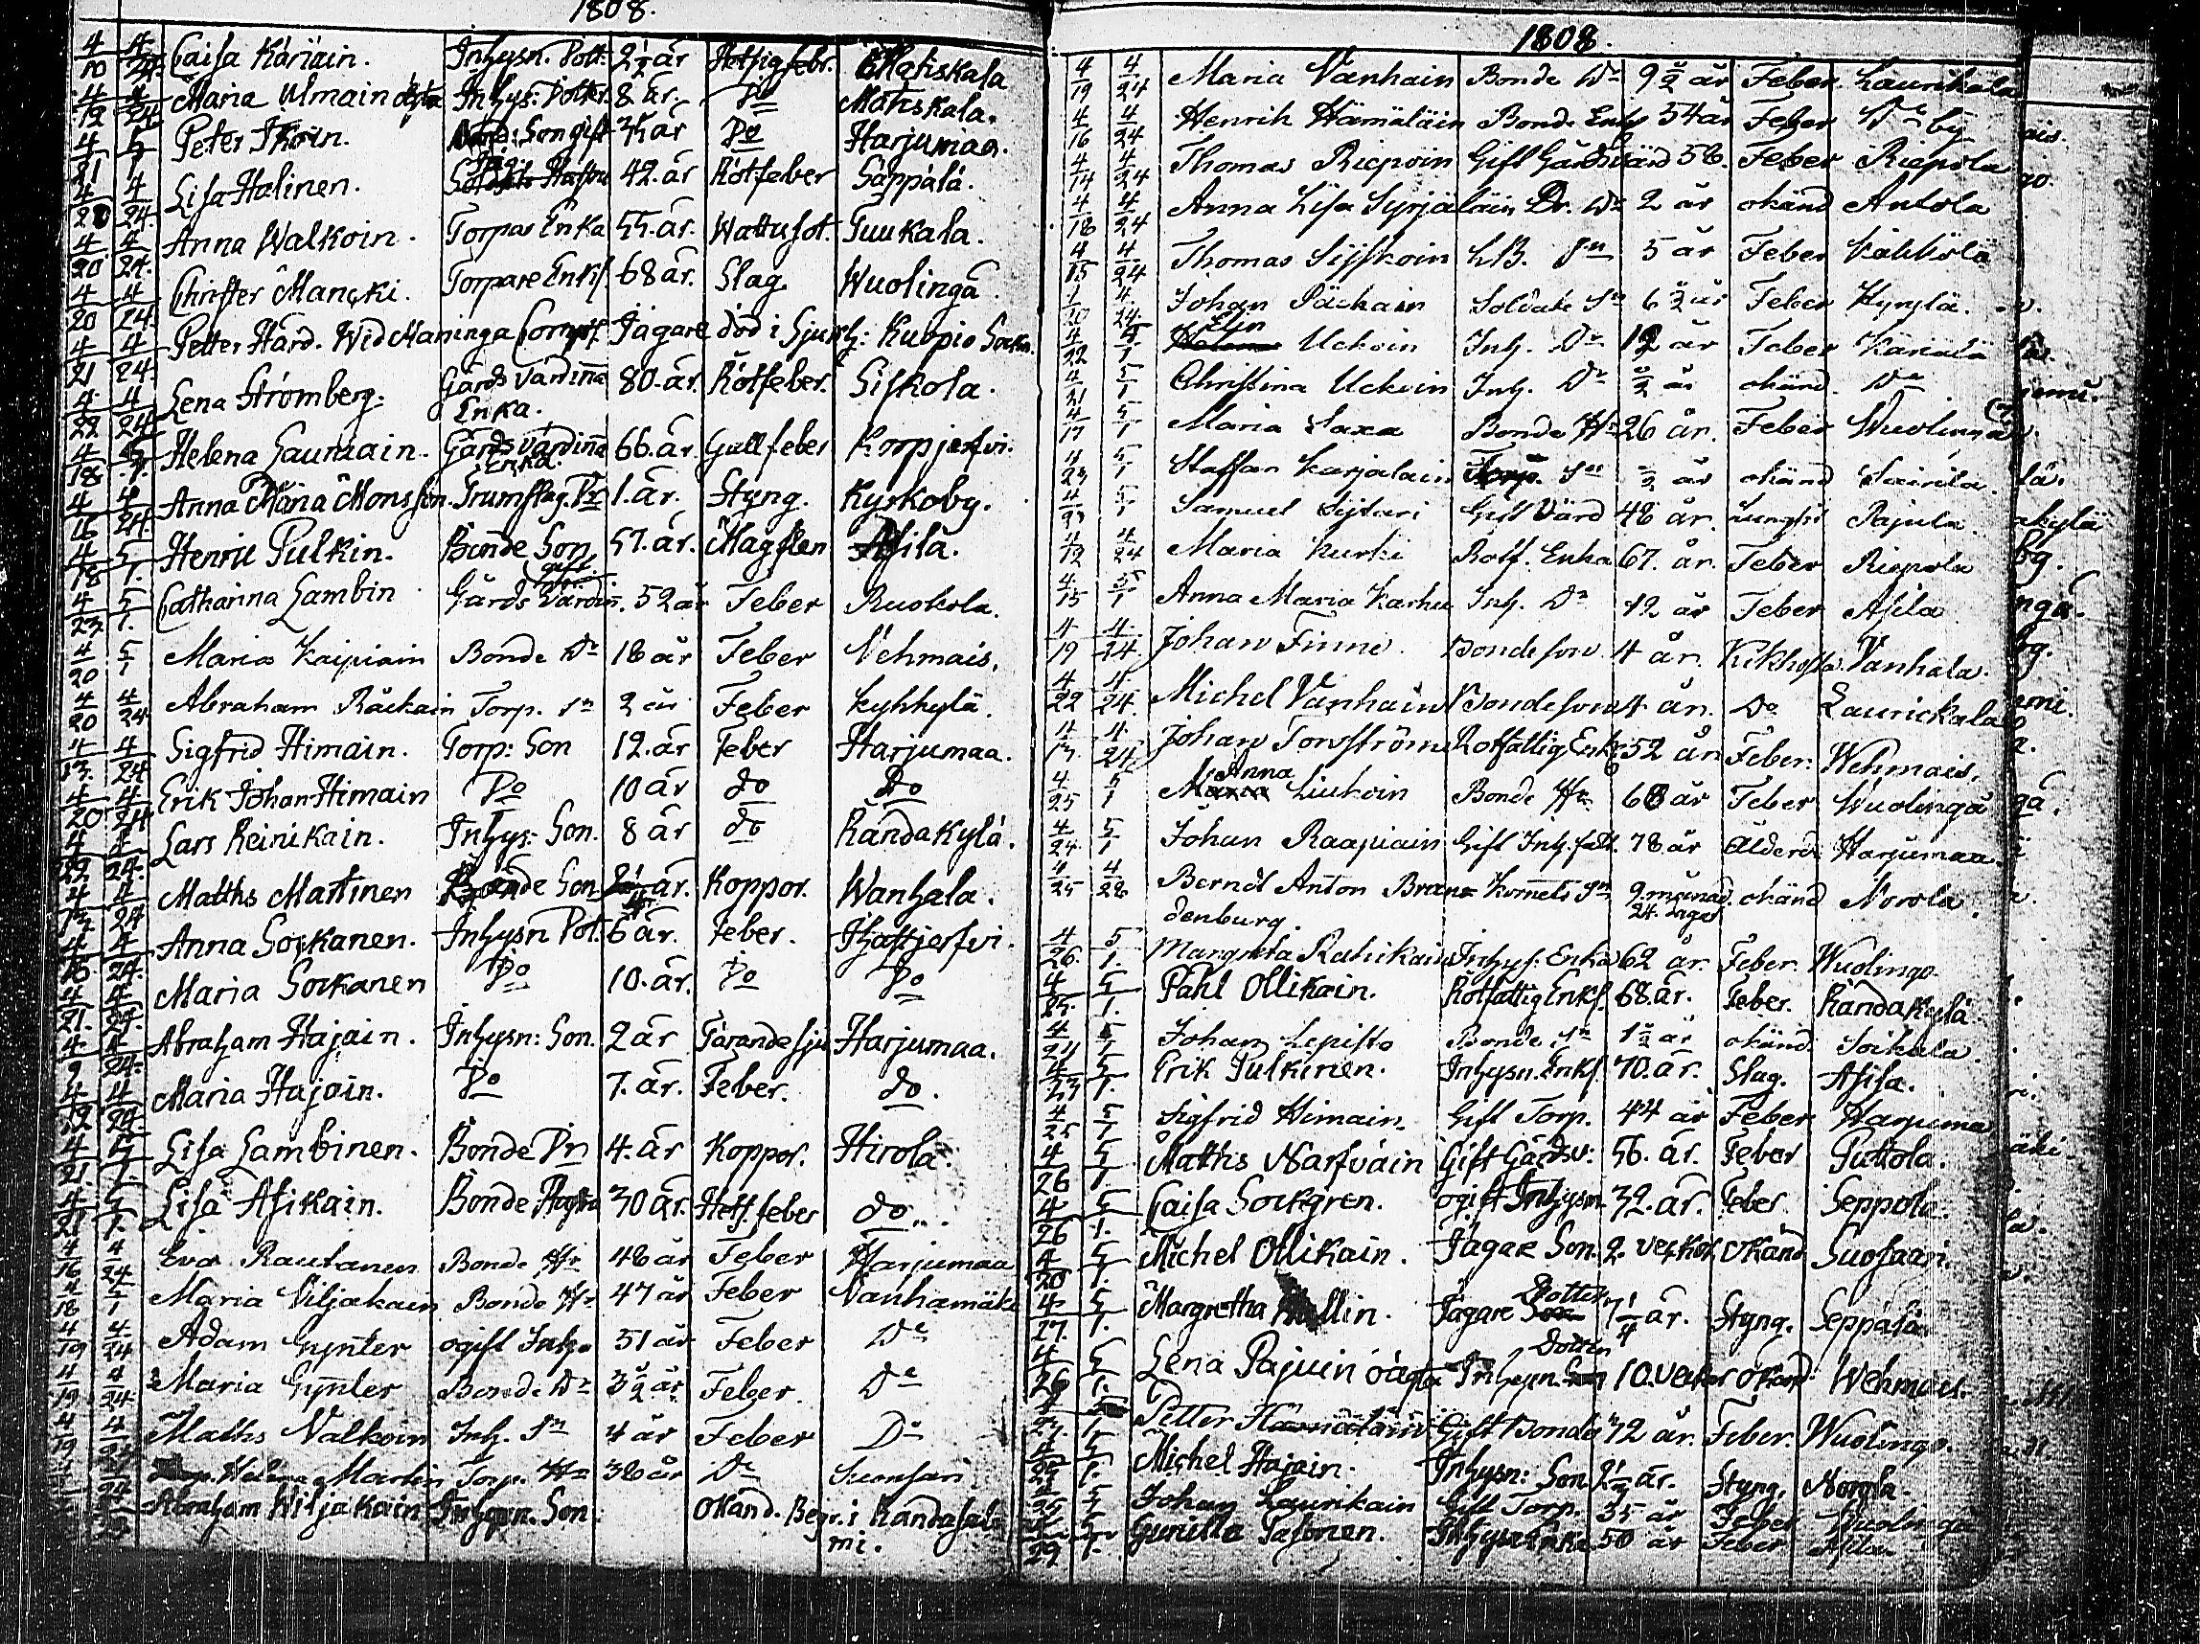 1808.
4/10 4/24 Caisa Käriäin. Inhysn. Dott. 2½ år Hetsig febr. Matiskala
4/19 4/24 Maria Ulmain Inhys: Dotter 8 år Do Matiskala.
4/21 5/1 Peter Thoin. Son gift 35 år Do Harjumaa.
4/20 4/24 Lisa Halinen. 42. år Rötfeber Säppälä.
4/20 4/24. Anna Walkoin. Torpar Enka 55. år. Wattusot. Tuukala.
4/20 4/24. Christer Manski. Torpare Enkl. 68 år. Slag. Wuolingå
4/21 4/24. Petter Hård. Wid Maninga Jägare död i Sjukh: Kuopio Sockn.
4/22 4/24 Lena Strömberg. Gårds Värdinna Enka. 80. år. Rötfeber. Siskola.
4/18 5/1. Helena Gauriain. Gårds Värdinna Enka. 66. år. Gallfeber Korpjerfvi.
4/16 4/24 Anna Maria Monsson. Trumslag. Dr 1. år. Styng. Kyrkoby.
4/18 5/1. Henric Pulkin. Bonde Son gift 57. år. Magplen Asila.
4/23 5/1. Catharina Lambin Gårds Värdin. 52 år Feber Ruokola.
4/20 5/1 Maria Kaipiain Bonde Dr 18 år Feber Vehmais.
4/20 4/24 Abraham Räckain Torp. Sn 2 år Feber Kyhkylä.
4/13. 4/24 Sigfrid Himain. Torp: Son 12. år Feber Harjumaa.
4/20 4/24 Erik Johan Himain Do 10 år do Do
4/22 4/24. Lars Reinikain. Inhys: Son. 8 år do Randakylä.
4/17 4/24 Matths Martinen Bonde Son år. Koppor. Wanhala.
4/16 4/24. Anna Sorkanen. Inhysn Dot. 6 år. Feber. Ihastjerfvi.
4/21. 4/24. Maria Sorkanen Do 10. år. Do Do
4/9 4/24. Abraham Hajain. Inhysn: Son. 2 år Tärande sju Harjumaa.
4/19 4/24. Maria Hajoin. Do 7. år. Feber. do.
4/21. 5/1. Lisa Lambinen. Bonde Dr 4. år Koppor. Hirola.
4/21 5/1. Lisa Asikain. Bonde Hustru 30 år. Hets. feber do.
4/16 4/24 Eva Rautanen Bonde Hu 48 år Feber Harjumaa
4/18 5/1 Maria Viljakain Bonde Hu 47 år Feber Vanhamäki
4/19 4/24 Adam Gynter ogift Inh. 51 år Feber Do
4/19 4/24 Maria Gynter Bonde Dr 3½ år Feber. Do
4/19 4/24 Maths Valkoin Inh. Sn 4 år Feber Do
Helena Martin Torp. Hu 38 år Do Suonsari
Abraham Wiljakain Inhysn. Son. Okänd. Begr. i Randasalmi.
1808.
4/19 4/24 Maria Vanhain Bonde Dr 9½ år Feber. Laurikala
4/16 4/24 Henrik Hämäläin Bonde Enkl 54 år Feber Do by
4/14 4/24 Thomas Riepoin Gift Gårdsvärd 58. Feber Riepola
4/18 4/24 Anna Lisa Syrjäläin Dr. 2 år okänd Antola
4/15 4/24 Thomas Sijskoin Sn 5 år Feber Kälkölä
4/20 4/24. Johan Päckain Soldats Sn 6½ år Feber Kyrylä.
4/22 5/1 Elin Uckoin Inh. Dr 12 år Feber Käriälä
4/21 5/1 Christina Uckoin Inh. Dr ½ år okänd. Do
4/17 5/1 Maria Saxa Bonde Hu 26 år. Feber Wuolingå
4/23 5/1 Staffan Karjalain Torp. Sn ½ år okänd Saurila.
4/23 5/1 Samuel Sijtari Gift Värd 48 år. Lungsot Pajula
4/12 4/24 Maria Kurki Rotf. Enka 67. år. Feber Riepola
4/15 5/1 Anna Maria Karhu Inh. Dr 12 år Feber Asila
4/19 4/24. Johan Finne. Bondeson. 4 år. Kikhosta. Vanhala.
4/22 4/24. Michel Vanhain Bondeson 4 år. Do Laurickala
4/17. 4/24. Johan Forsström Rotfattig Enkl 52 år Feber. Wehmais.
4/25 5/1 Anna Liukoin Bonde Hu 68 år Feber Wuolingå
4/24. 5/1 Johan Raapiain Gift Inh. fatt. 78 år Ålderd. Harjumaa
4/25 4/28 Berndt Anton Brandenburg Kornets Sn 9. månad. 24. dagar okänd Norola.
4/26. 5/1. Margreta Rahikain Inhys: Enka 62 år. Feber. Wuolingo.
4/25. 5/1. Pahl Ollikain. Rotfattig Enkl. 68. år. Feber. Randakylä
4/24 5/1 Johan Lepisto Bonde Sn 1½ år okänd. Soikala.
4/23 5/1. Erik Pulkinen. Inhysn. Enkl. 70. år. Slag. Asila.
4/25 5/1 Sigfrid Himain. Gift Torp. 44 år Feber Harjuma
4/26 5/1 Matths Narfväin Gift Gårdsv: 56. år. Feber Puttola.
4/26 5/1. Caisa Sorkgren. ogift Inhysn 32. år. Feber. Seppälä.
4/20 5/1. Michel Ollikain. Jägare Son. 2. veckor. Okänd Suosaari.
4/27. 5/1. Margretha Hallin. Jägare Dotter 7¼ år. Styng. Seppälä.
4/26 5/1. Lena Pajuin oägta Inhysn. Dotter 10. veckor Okänd Wehmais.
4/27. 5/1. Petter Hämäläin Gift Bonde 72 år. Feber. Wuolingo.
5/1. Michel Hajain. Inhysn: Son. 2½ år. Styng. Norola.
5/1 Johan Laurikain Gift Torp. 35 år Feber Wuolingå
4/29 5/1. Gunilla Tasonen. Inhyses Enka 50 år Feber Asila